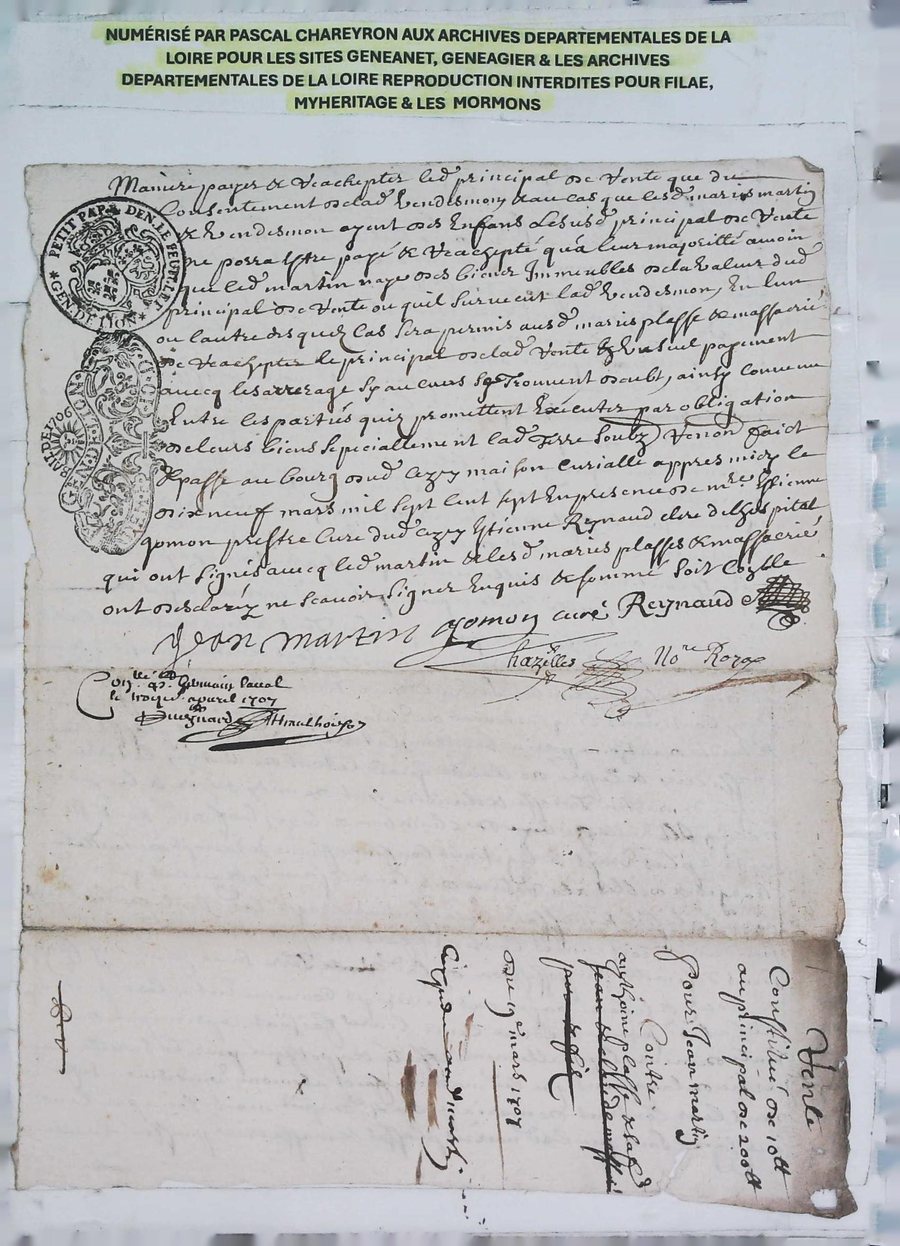 NUMÉRISÉ PAR PASCAL CHAREYRON AUX ARCHIVES DEPARTEMENTALES DE LA
LOIRE POUR LES SITES GENEANET, GENEAGIER & LES ARCHIVES
DEPARTEMENTALES DE LA LOIRE REPRODUCTION INTERDITES POUR FILAE,
MYHERITAGE & LES MORMONS
payer & reachepter led principal de rente que du
Consentement de lad Vendesmon & au cas que lesd maries martin
& Vendesmon ayent des Enfans Le susd principal de rente
ne porra estre payé & reachepté qu'a leur majorité a moin
que led martin naye des biens Immeubles de la Valeur dud
principal de rente ou quil survecut lad Vendesmon, En lun
ou lautre desquelz cas sera permis ausd maries plasse & massacrié
de reachepter le principal de lad rente En Un seul payement
avecq les arrerage sy aucuns se trouvent deubt, ainsy convenu
Entre les partiés quiz promettent Executer par obligation
de leurs biens specialement lad terre soubz Faict
& passé au bourg dud cezey maison Curialle appres midy le
dix neuf mars mil sept cent sept En presence de mre Estienne
gomon prestre Curé dud cezey Estienne Reynaud clerc de lhospital
qui ont signés avecq led martin & lesd maries plasses & massacrié
ont desclaréz ne scavoir signer Enquis & sommé soit
Jean martin gomon curé Reynaud
Chazelles Nore Roya
PETIT PAP. DENI.LE FEUILLET
GEN. DE LION
BAIL DE 1706
GEN
Germain Laval
le avril 1707
Vente
Constitué de 10tt
au principal de 200tt
Pour Jean martin
Contre
anthoine plasse & sa
du 19e mars 1707